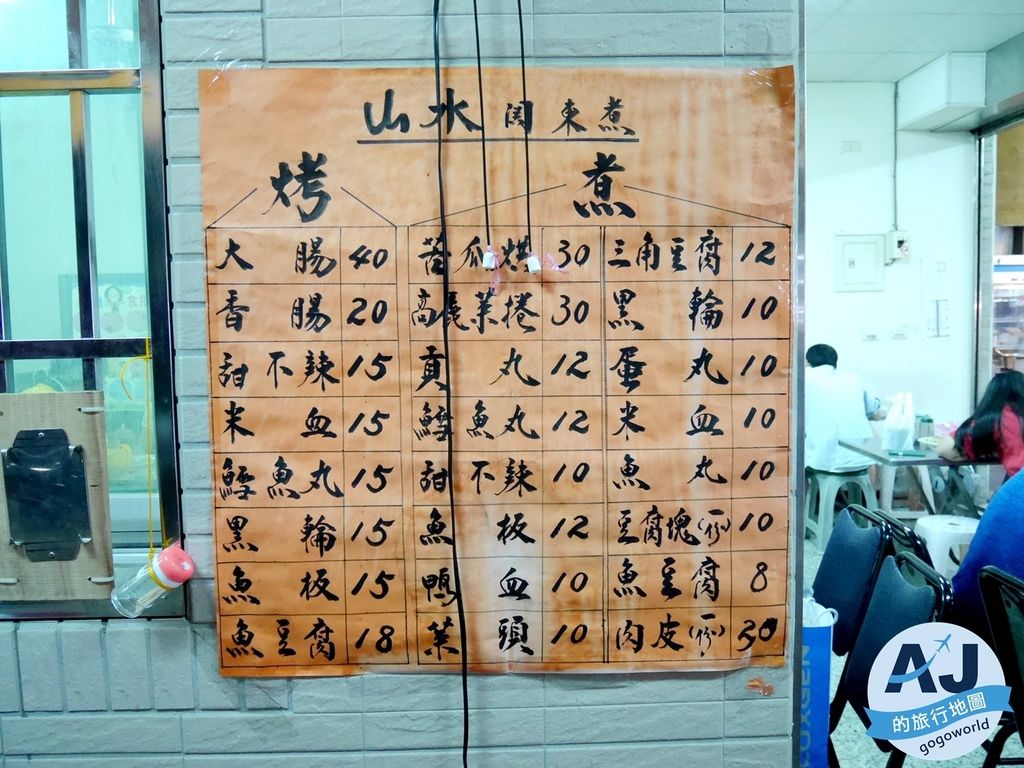 山水関東煮
烤 煮
大腸 40 苦瓜烘 30 三角豆腐 12
香腸 20 高麗菜捲 30 黑輪 10
甜不辣 15 貢丸 12 蛋丸 10
米血 15 鱈魚丸 12 米血 10
鱈魚丸 15 甜不辣 10 魚丸 10
黑輪 15 魚板 12 豆腐塊(一份) 10
魚板 15 鴨血 10 魚豆腐 8
魚豆腐 18 菜頭 10 肉皮(一份) 30
LUXGEN
AJ
的旅行地圖
gogoworld